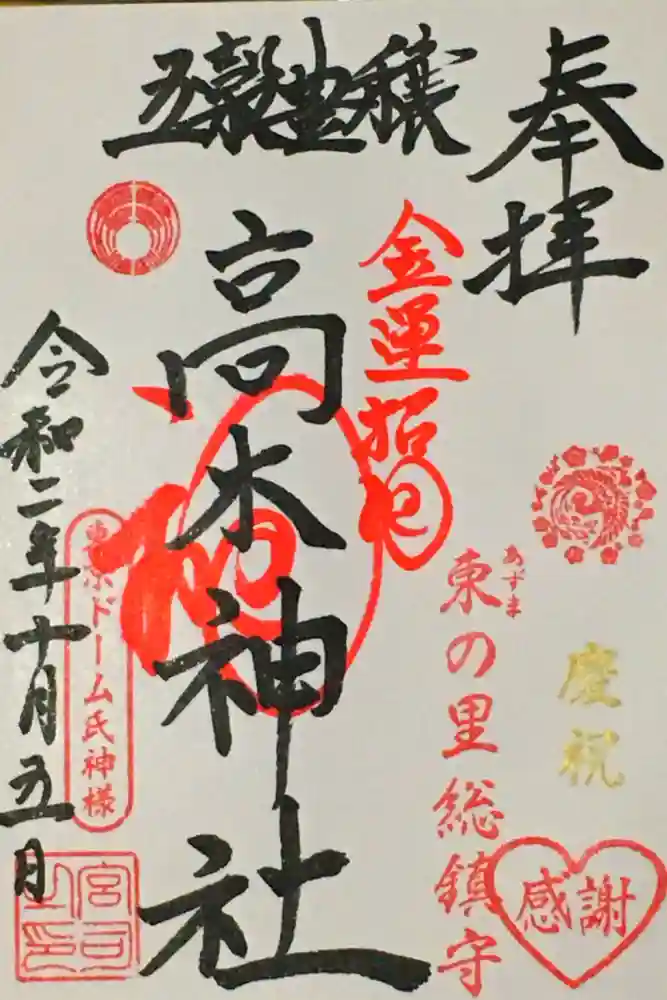 奉拝
五穀豊穣
金運招
慶祝
感謝
あずま
東の里総鎮守
高木神社
ドーム氏神様
令和二年十月五日
宮司
之印